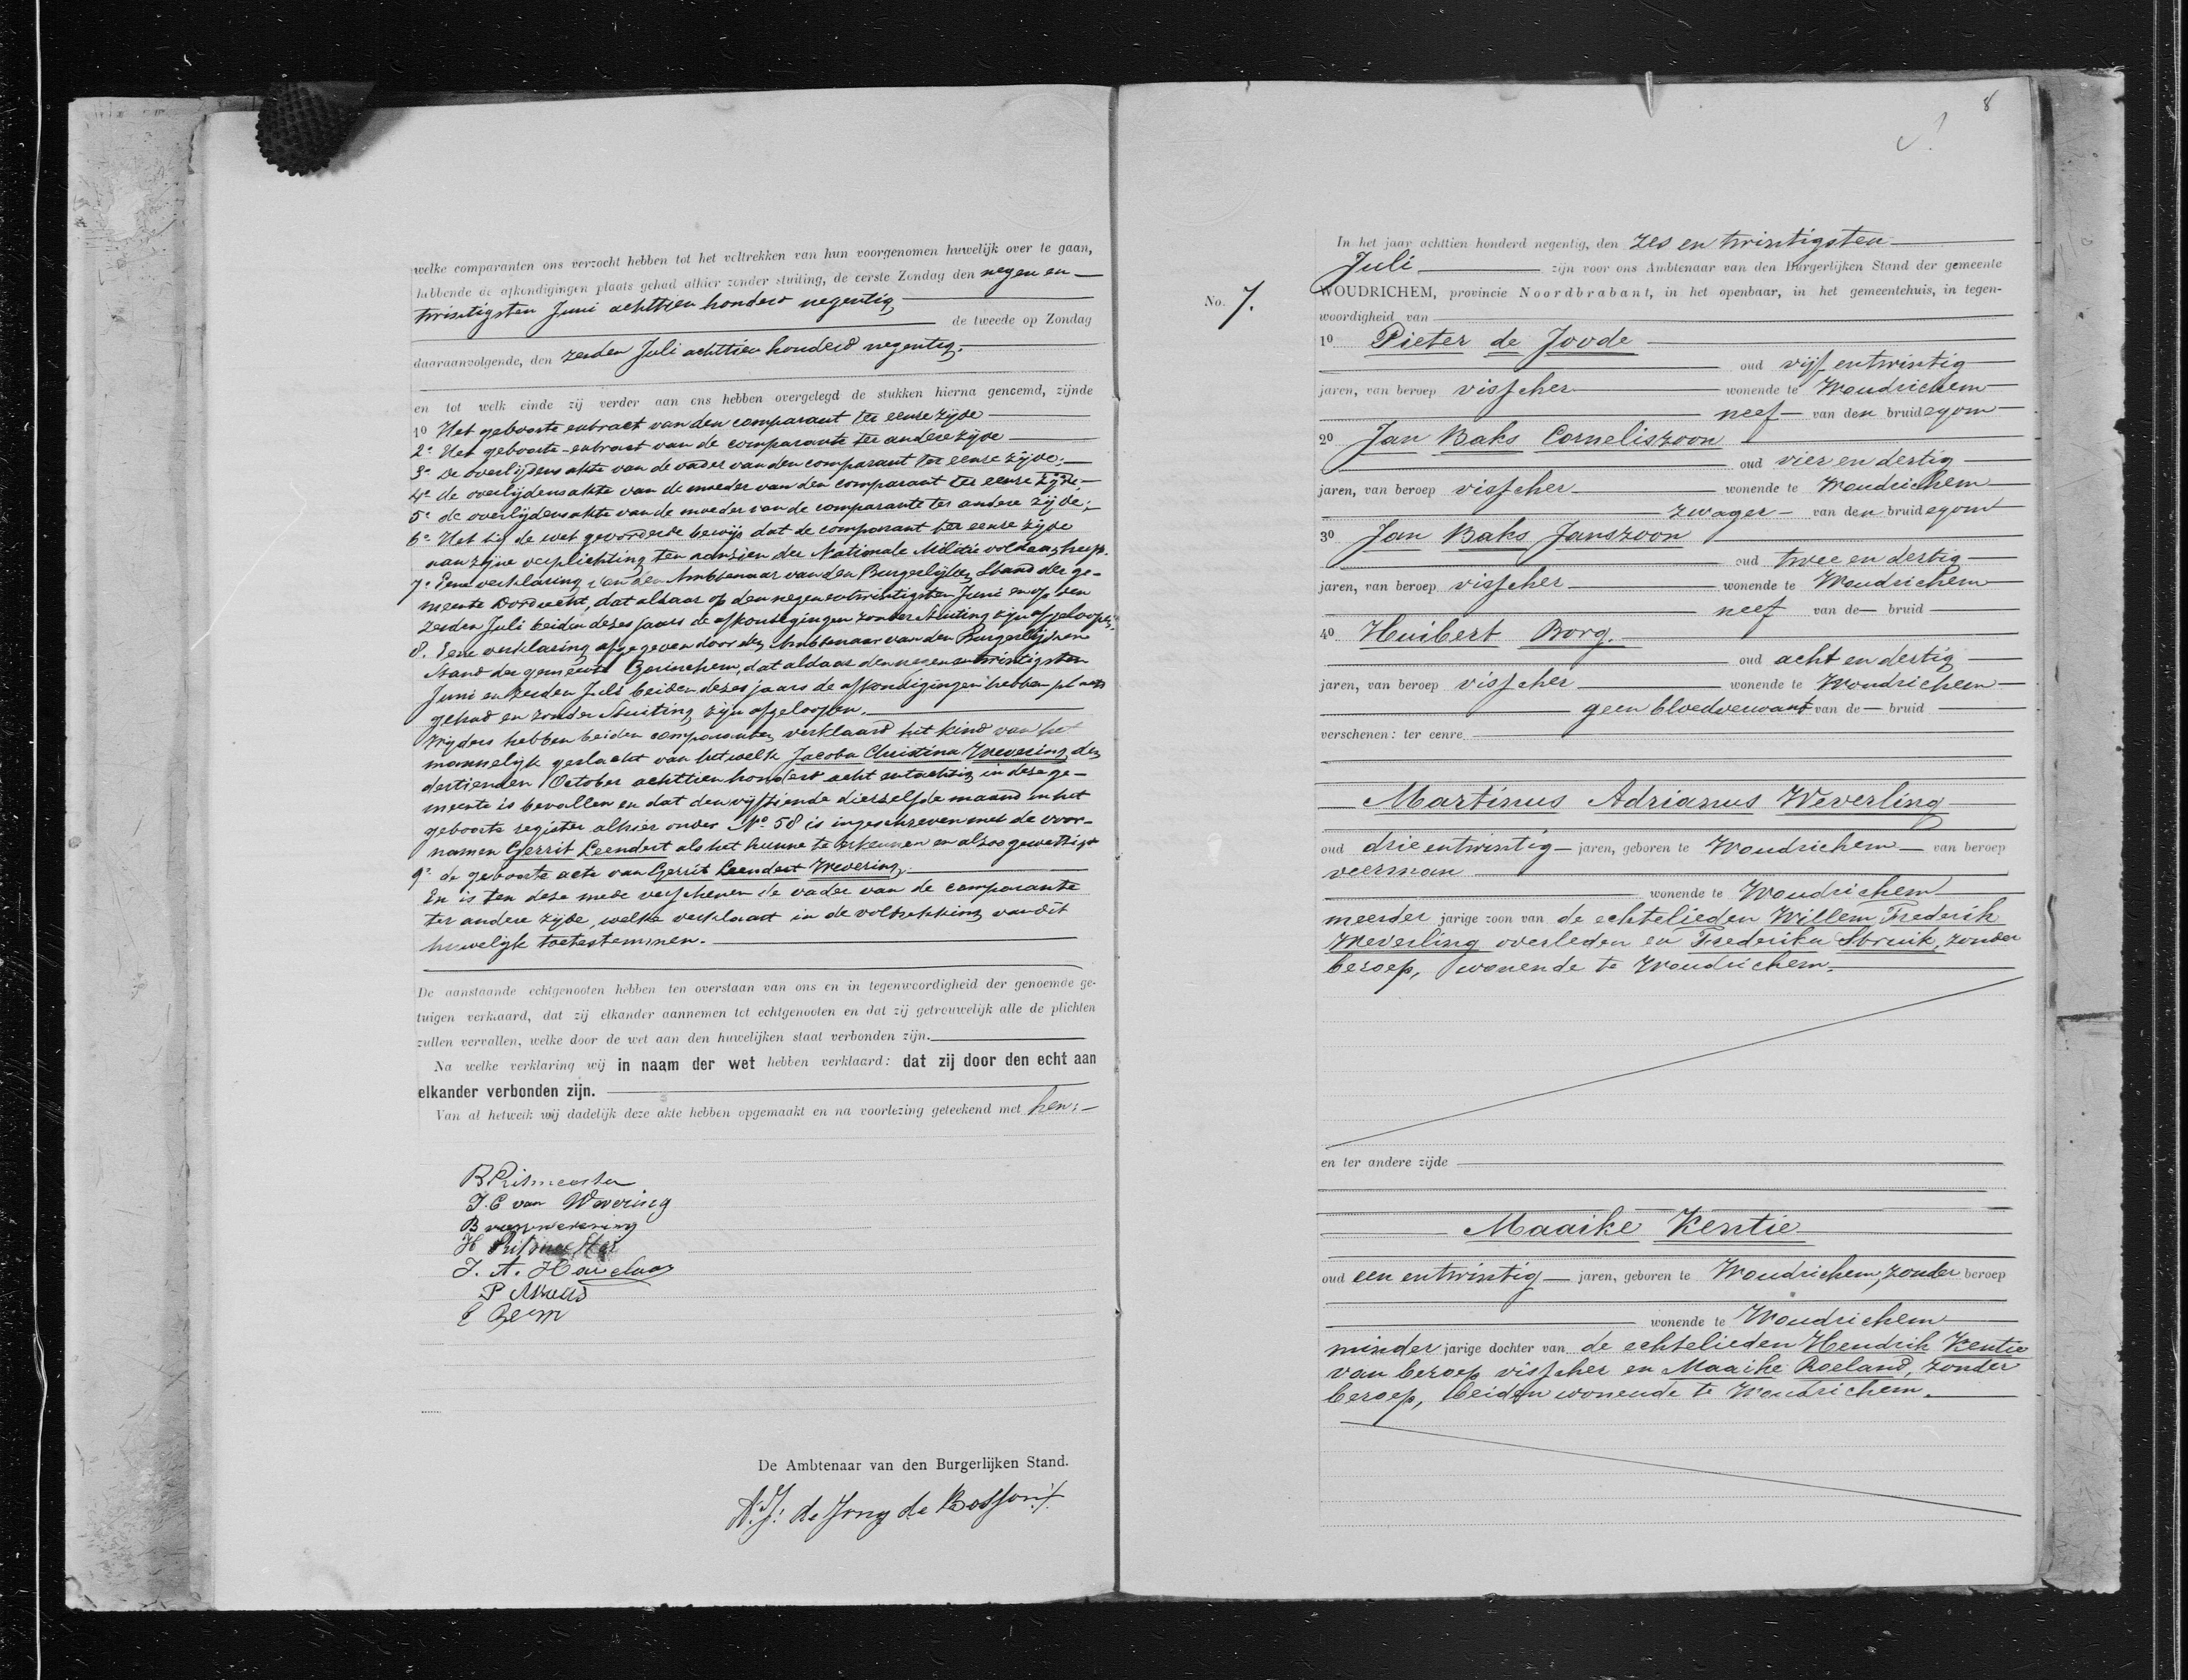 welke comparanten ons verzocht hebben tot het voltrekken van hun voorgenomen huwelijk over te gaan,
hebbende de afkondigingen plaats gehad alhier zonder stuiting, de eerste Zondag den negen en
twintigsten Juni achttien honderd negentig
de tweede op Zondag
daaraanvolgende, den zesden Juli achttien honderd negentig.
en tot welk einde zij verder aan ons hebben overgelegd de stukken hierna genoemd, zijnde
1o Het geboorte extract van den comparant ter eenre zijde
2e Het geboorte-extract van de comparante ter andere zijde
3e De overlijdens akte van de vader van den comparant ter eenre zijde;
4e de overlijdensakte van de moeder van den comparant ter eenre zijde;
5e de overlijdensakte van de moeder van de comparante ter andere zijde;
6e Het bij de wet gevorderde bewijs dat de comparant ter eenre zijde
aan zijne verplichting ten aanzien der Nationale Militie voldaan heeft.
7e Eene verklaring van den Ambtenaar van den Burgerlijken Stand der ge-
meente Dordrecht, dat aldaar op den negen entwintigsten Juni en op den
zesden Juli beiden dezes jaars de afkondigingen zonder stuiting zijn afgeloopen;
8. Eene verklaring afgegeven door den Ambtenaar van den Burgerlijken
Stand der gemeente Gorinchem, dat aldaar den negenentwintigsten
Juni en zesden Juli beiden dezes jaars de afkondigingen hebben plaats
gehad en zonder stuiting zijn afgeloopen.
Wijders hebben beiden comparanten verklaard hit kind van het
mannelijk geslacht van hetwelk Jacoba Christina Wevering den
dertienden October achttienhonderd acht entachtig in deze ge-
meente is bevallen en dat den vijftiende dierzelfde maand in het
geboorte register alhier onder No 58 is ingeschreven met de voor-
namen Gerrit Leendert als het hunne te erkennen en alzoo gewettigt
9e de geboorte acte van Gerrit Leendert Wevering.
En is ten deze mede verschenen de vader van de comparante
ter andere zijde, welke verklaart in de voltrekking van dit
huwelijk toetestemmen.
De aanstaande echtgenooten hebben ten overstaan van ons en in tegenwoordigheid der genoemde ge-
tuigen verklaard, dat zij elkander aannemen tot echtgenooten en dat zij getrouwelijk alle de plichten
zullen vervullen, welke door de wet aan den huwelijken staat verbonden zijn.
Na welke verklaring wij in naam der wet hebben verklaard: dat zij door den echt aan
elkander verbonden zijn.
Van al hetwelk wij dadelijk deze akte hebben opgemaakt en na voorlezing geteekend met hen:
B Ritmeester
J. C van Wevering
B
H Ritmeester
J. A.
P
C
De Ambtenaar van den Burgerlijken Stand.
de Jong de
8
No. 7.
In het jaar achttien honderd negentig, den zes en twintigsten
Juli zijn voor ons Ambtenaar van den Burgerlijken Stand der gemeente
WOUDRICHEM, provincie Noordbrabant, in het openbaar, in het gemeentehuis, in tegen-
woordigheid van
1o Pieter de Joode
oud vijf entwintig
jaren, van beroep visscher wonende te Woudrichem
neef van den bruidegom
2o Jan Baks Corneliszoon
oud vier en dertig
jaren, van beroep visscher wonende te Woudrichem
zwager van den bruidegom
3o Jan Baks Janszoon
oud twee en dertig
jaren, van beroep visscher wonende te Woudrichem
neef van de bruid
4o Huibert Borg.
oud acht en dertig
jaren, van beroep visscher wonende te Woudrichem
geen bloedverwant van de bruid
verschenen: ter eenre
Martinus Adrianus Weverling
oud drie entwintig jaren, geboren te Woudrichem van beroep
veerman
wonende te Woudrichem
meerder jarige zoon van de echtelieden Willem Frederik
Weverling overleden en Frederika Struik, zonder
beroep, wonende te Woudrichem.
en ter andere zijde
Maaike Kentie
oud een entwintig jaren, geboren te Woudrichem, zonder beroep
wonende te Woudrichem
minder jarige dochter van de echtelieden Hendrik Kentie
van beroep visscher en Maaike Roeland, zonder
beroep, beiden wonende te Woudrichem.